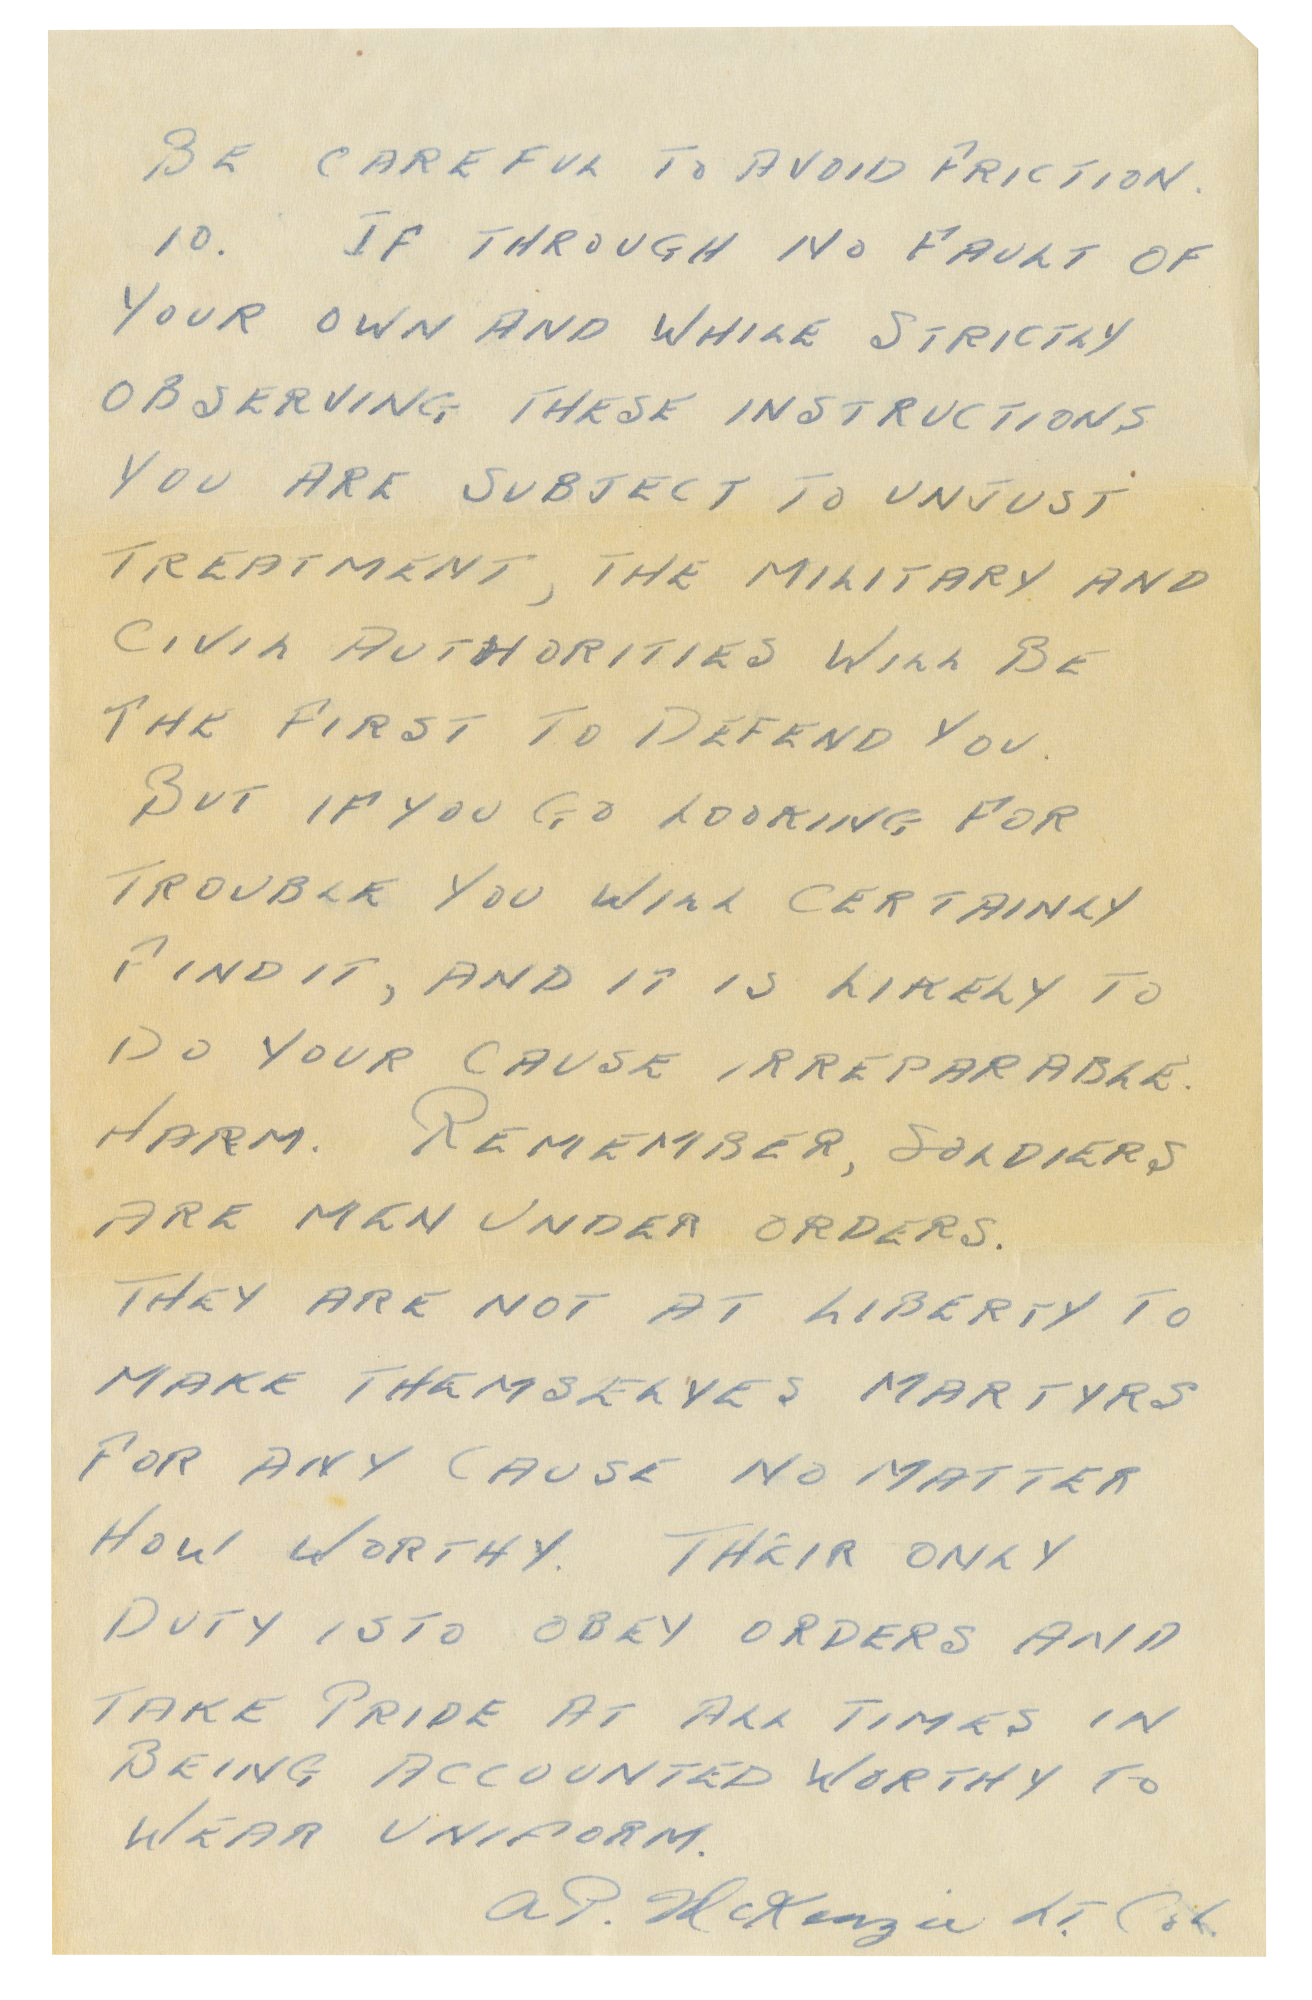 BE CAREFUL TO AVOID FRICTION.
10. IF THROUGH NO FAULT OF
YOUR OWN AND WHILE STRICTLY
OBSERVING THESE INSTRUCTIONS
YOU ARE SUBJECT TO UNJUST
TREATMENT, THE MILITARY AND
CIVIL AUTHORITIES WILL BE
THE FIRST TO DEFEND YOU.
BUT IF YOU GO LOOKING FOR
TROUBLE YOU WILL CERTAINLY
FIND IT, AND IT IS LIKELY TO
DO YOUR CAUSE IRREPARABLE.
HARM. REMEMBER, SOLDIERS
ARE MEN UNDER ORDERS.
THEY ARE NOT AT LIBERTY TO
MAKE THEMSELVES MARTYRS
FOR ANY CAUSE NO MATTER
HOW WORTHY. THEIR ONLY
DUTY IS TO OBEY ORDERS AND
TAKE PRIDE AT ALL TIMES IN
BEING ACCOUNTED WORTHY TO
WEAR UNIFORM.
A P. McKenzie LT. COL.